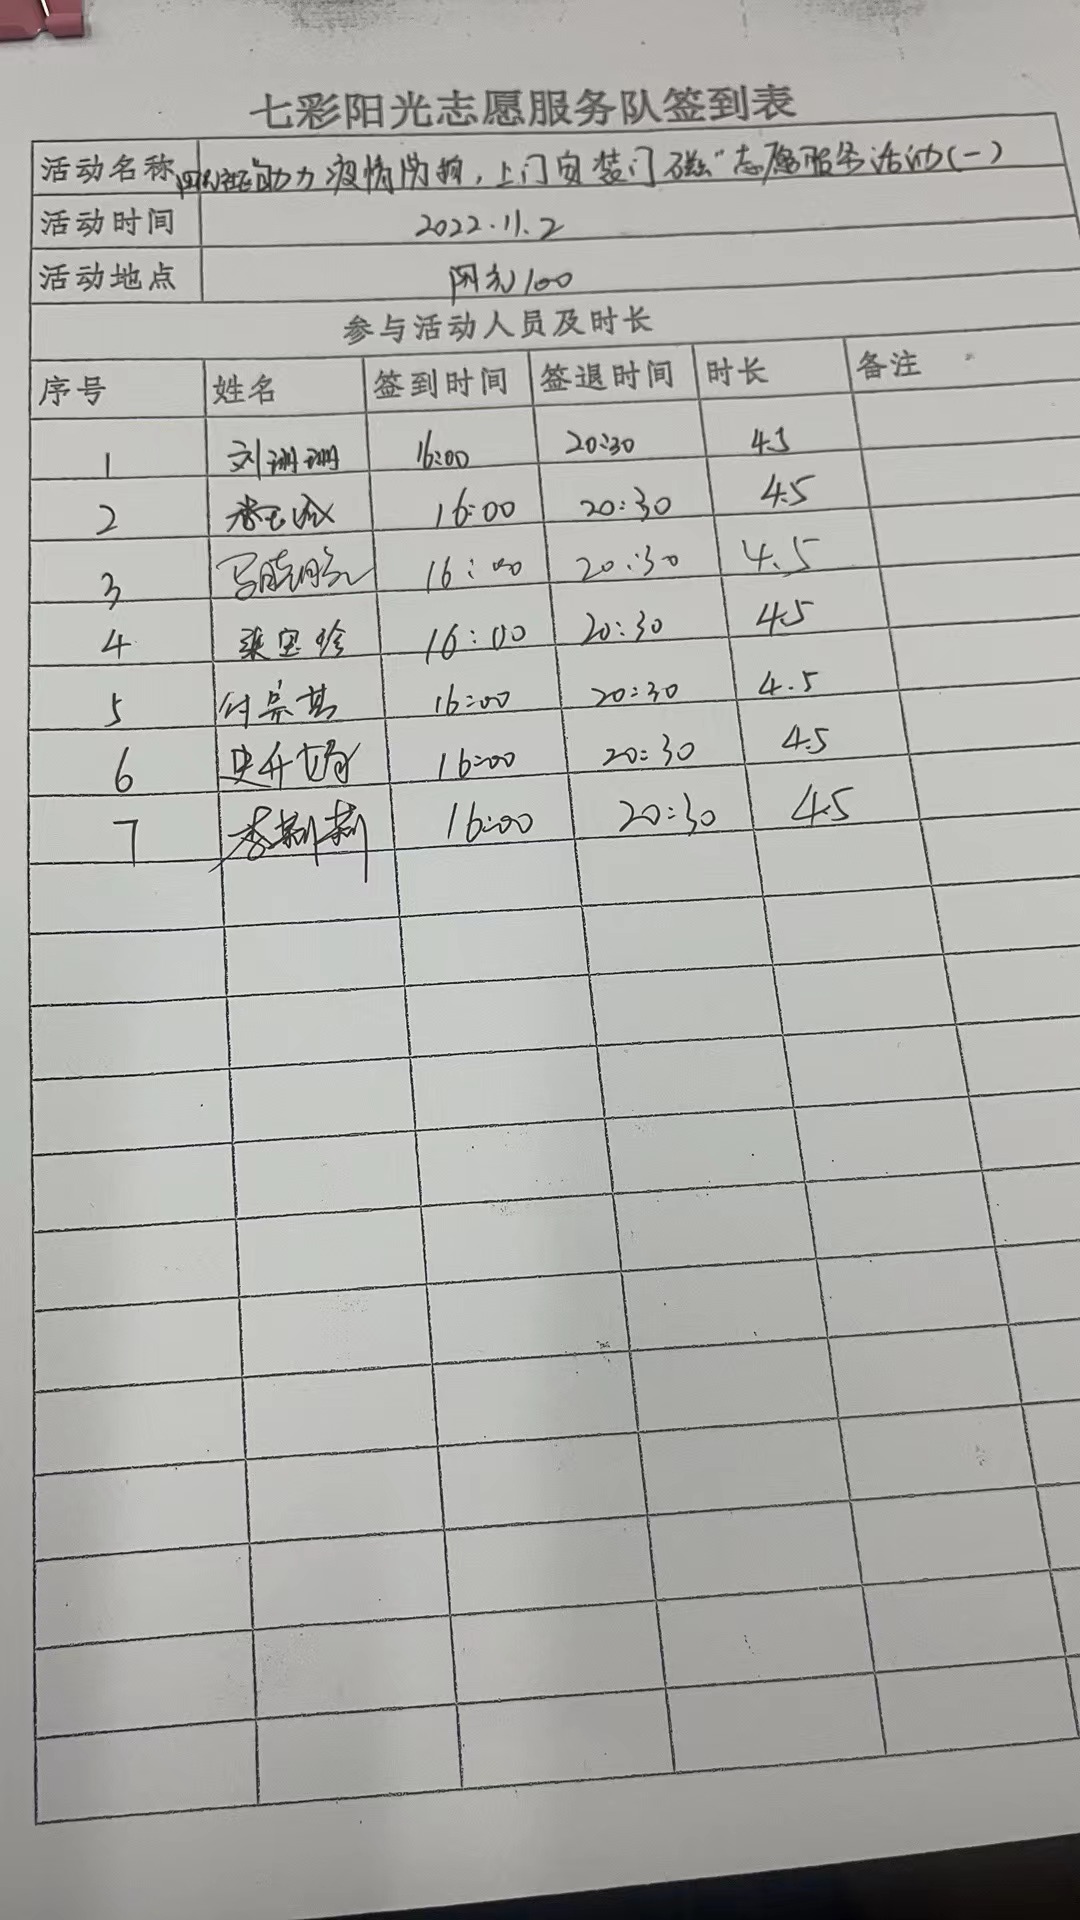 七彩阳光志愿服务队签到表
活动名称 助力疫情防控，上门安装门磁"志愿服务活动(一)
活动时间 2022.11.2
活动地点 阳光100
参与活动人员及时长
序号 姓名 签到时间 签退时间 时长 备注
1 刘珊珊 16:00 20:30 4.5
2 16:00 20:30 4.5
3 16:00 20:30 4.5
4 梁宝珍 16:00 20:30 4.5
5 付崇其 16:00 20:30 4.5
6 16:00 20:30 4.5
7 李莉莉 16:00 20:30 4.5